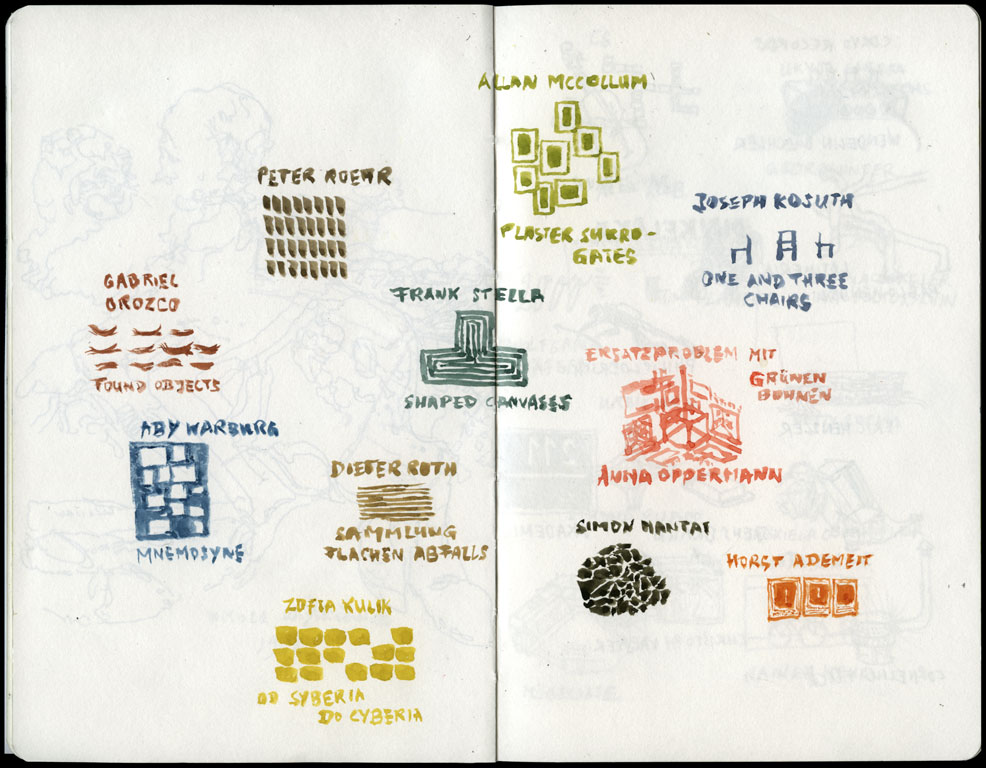 ALLAN MCCOLLUM
PLASTER SURRO-
GATES
PETER ROEHR
JOSEPH KOSUTH
ONE AND THREE
CHAIRS
GABRIEL
OROZCO
FOUND OBJECTS
FRANK STELLA
SHAPED CANVASES
ERSATZPROBLEM MIT
GRÜNEN
BOHNEN
ANNA OPPERMANN
ABY WARBURG
MNEMOSYNE
DIETER ROTH
SAMMLUNG
FLACHEN ABFALLS
SIMON HANTAI
HORST ADEMEIT
ZOFIA KULIK
OD SYBERIA
DO CYBERIA